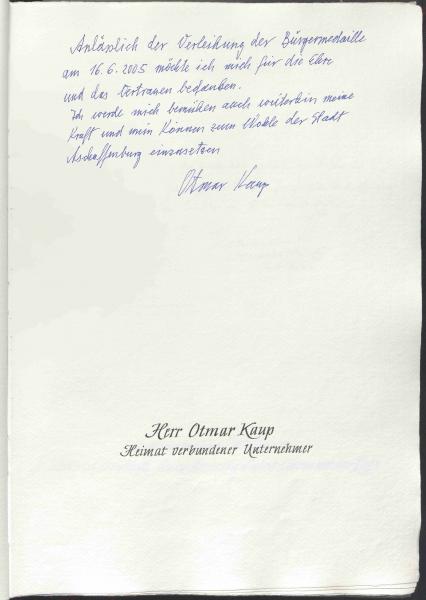 Anläßlich der Verleihung der Bürgermedaille
am 16.6.2005 möchte ich mich für die Ehre
und das Vertrauen bedanken.
Ich werde mich bemühen auch weiterhin meine
Kraft und mein Können zum Wohle der Stadt
Aschaffenburg einzusetzen
Otmar Kaup
Herr Otmar Kaup
Heimat verbundener Unternehmer